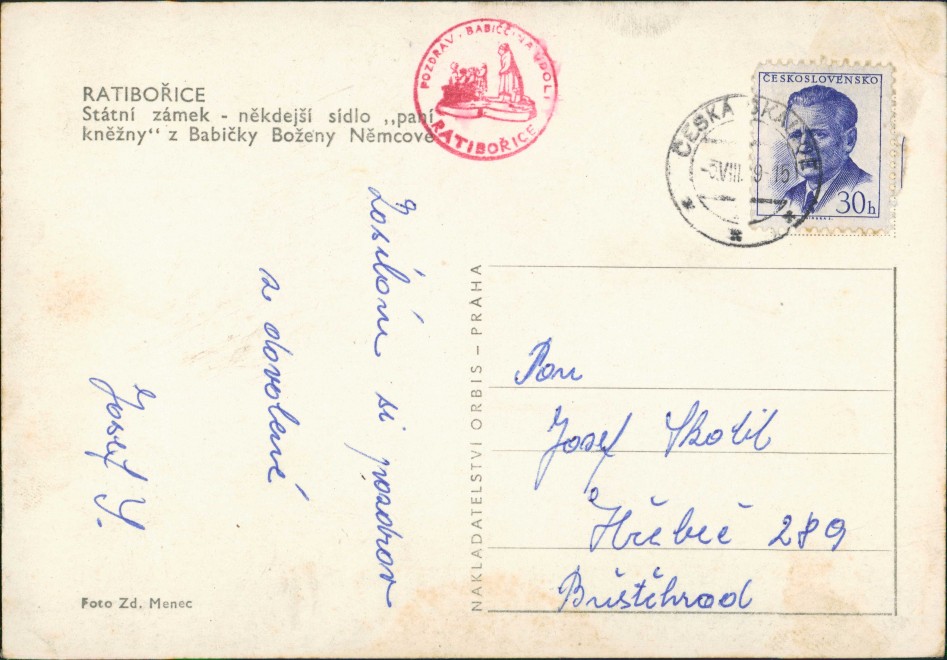 RATIBOŘICE
Státní zámek - někdejší sídlo „paní
kněžny“ z Babičky Boženy Němcové
POZDRAV · BABIČČINA ÚDOLÍ
RATIBOŘICE
ČESKOSLOVENSKO
30h
ČESKÁ SKALICE
-5.VIII. 9-15
Posílám si pozdrav
z dovolené
Josef Y.
NAKLADATELSTVÍ ORBIS – PRAHA
Pan
Josef Skobil
Hřebeč 289
Buštěhrad
Foto Zd. Menec